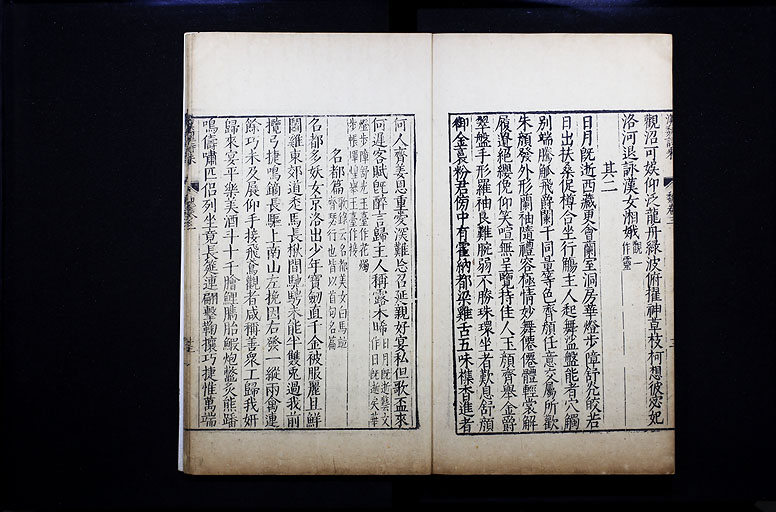 觀沼可娛仰泛龍舟綠波俯擢神草枝柯想彼宓妃
洛河退詠漢女湘娥觀一作靈
其二
日月既逝西藏更會蘭室洞房華燈步障舒光皎若
日出扶桑促樽合坐行觴主人起舞娑盤能者穴觸
別端騰觚飛爵闌干同量等色齊顏任意交屬所歡
朱顏發外形蘭袖隨禮容極情妙舞僊僊體輕裳解
履遺絕纓俛仰笑喧無呈覽持佳人玉顏齊舉金爵
翠盤手形羅袖良難腕弱不勝珠環坐者歎息舒顏
御金裛粉君傍中有霍納都梁雞舌五味雜香進者
何人齊姜恩重愛深難忘召延親好宴私但歌盃來
何遲客賦既醉言歸主人稱露未晞日月既逝藝文作日既逝矣華
燈步障舒光玉臺作花燭步帳輝煌翠玉臺作接
名都篇歌錄云名都美女白馬並齊瑟行也皆以首句名篇
名都多妖女京洛出少年寶劒直千金被服麗且鮮
鬬雞東郊道走馬長楸間馳騁未能半雙兎過我前
攬弓捷鳴鏑長驅上南山左挽因右發一縱兩禽連
餘巧未及展仰手接飛鳶觀者咸稱善衆工歸我妍
歸來宴平樂美酒斗十千膾鯉臇胎鰕炮鱉炙熊蹯
鳴儔嘯匹侶列坐竟長筵連翩擊鞠壤巧捷惟萬端